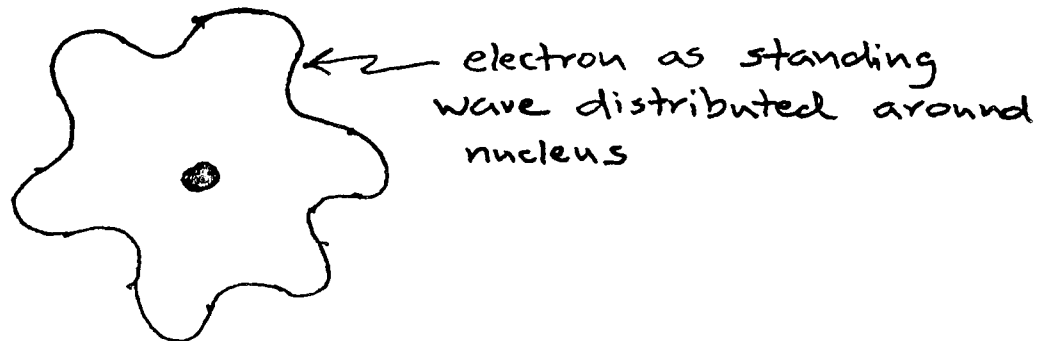 electron as standing
wave distributed around
nucleus